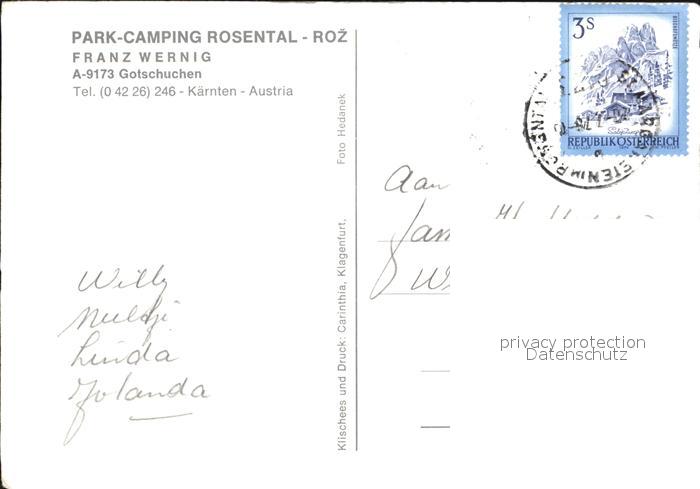 PARK-CAMPING ROSENTAL - ROŽ
FRANZ WERNIG
A-9173 Gotschuchen
Tel. (0 42 26) 246 - Kärnten - Austria
Klischees und Druck: Carinthia, Klagenfurt.
Foto Hedanek
3S
REPUBLIK ÖSTERREICH
Aan
Willy
Linda
Yolanda
privacy protection
Datenschutz